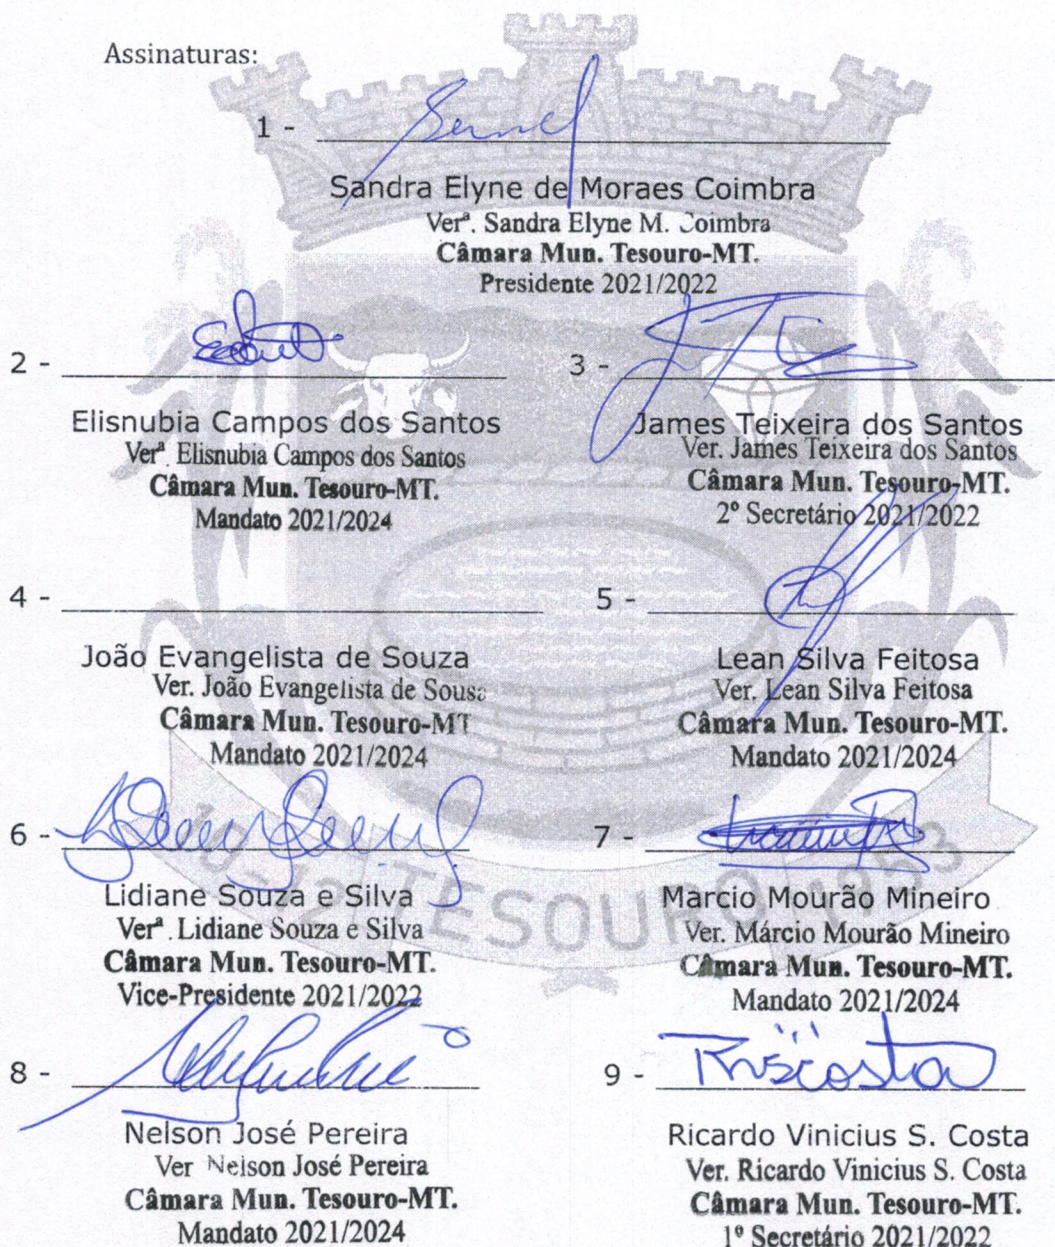 Assinaturas:
1 -
Sandra Elyne de Moraes Coimbra
Verª. Sandra Elyne M. Coimbra
Câmara Mun. Tesouro-MT.
Presidente 2021/2022
2 -
Elisnubia Campos dos Santos
Verª. Elisnubia Campos dos Santos
Câmara Mun. Tesouro-MT.
Mandato 2021/2024
3 -
James Teixeira dos Santos
Ver. James Teixeira dos Santos
Câmara Mun. Tesouro-MT.
2º Secretário 2021/2022
4 -
João Evangelista de Souza
Ver. João Evangelista de Sousa
Câmara Mun. Tesouro-MT
Mandato 2021/2024
5 -
Lean Silva Feitosa
Ver. Lean Silva Feitosa
Câmara Mun. Tesouro-MT.
Mandato 2021/2024
6 -
Lidiane Souza e Silva
Verª. Lidiane Souza e Silva
Câmara Mun. Tesouro-MT.
Vice-Presidente 2021/2022
7 -
Marcio Mourão Mineiro
Ver. Márcio Mourão Mineiro
Câmara Mun. Tesouro-MT.
Mandato 2021/2024
10-12 TESOURO 1953
8 -
Nelson José Pereira
Ver Nelson José Pereira
Câmara Mun. Tesouro-MT.
Mandato 2021/2024
9 -
Ricardo Vinicius S. Costa
Ver. Ricardo Vinicius S. Costa
Câmara Mun. Tesouro-MT.
1º Secretário 2021/2022